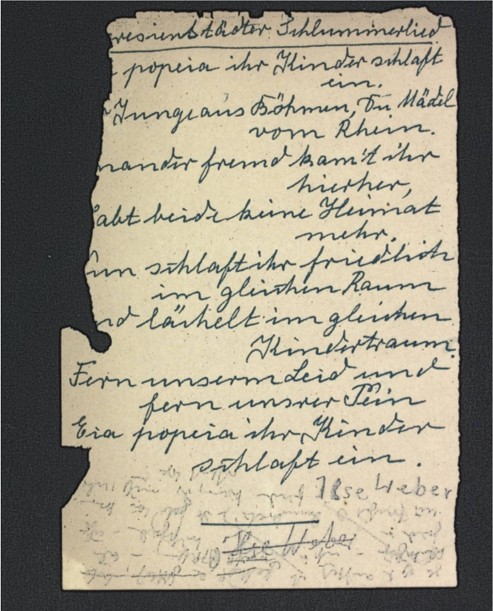 resienstädter Schlummerlied
popeia ihr Kinder schlaft
ein.
Junge aus Böhmen, Du Mädel
vom Rhein.
nander fremd kam't ihr
hierher,
abt beide keine Heimat
mehr.
un schlaft ihr friedlich
im gleichen Raum
nd lächelt im gleichen
Kindertraum.
Fern unserm Leid und
fern unsrer Pein
Eia popeia ihr Kinder
schlaft ein.
Ilse Weber
Ilse Weber